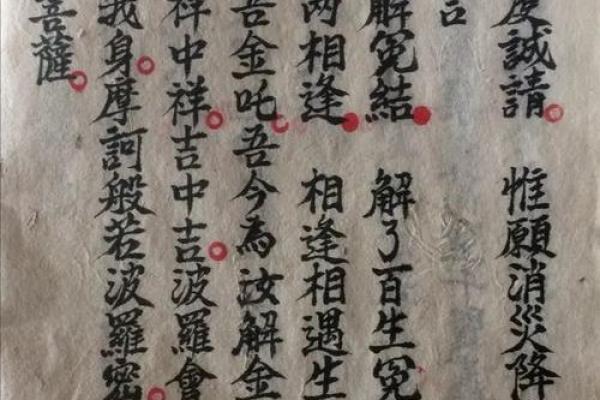 誠請 惟願消災降
解冤結 解了百生冤
兩相逢 相逢相遇生
吾金吒吾今為汝解金
祥中祥吉中吉波羅會
我身摩訶般若波羅密
菩薩